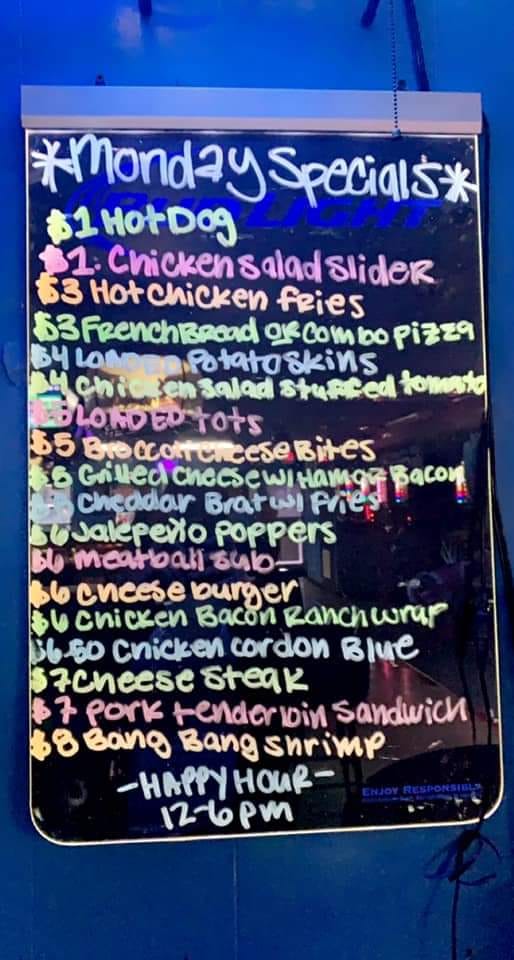 *Monday Specials*
BUD LIGHT
$1 Hot Dog
$1. Chicken salad slider
$3 Hot Chicken fries
$3 French Bread or combo pizza
$4 LOADED Potato skins
$4 Chicken salad stuffed tomato
LOADED tots
$5 Broccoli cheese Bites
Grilled cheese w/ Ham or Bacon
Cheddar Brat w/ fries
$6 Jalepeño Poppers
$6 meatball sub
$6 cheese burger
$6 Chicken Bacon Ranch wrap
$6.50 Chicken cordon Blue
$7 Cheese steak
$7 pork tenderloin sandwich
$8 Bang Bang shrimp
-HAPPY HOUR-
12-6pm
ENJOY RESPONSIBLY